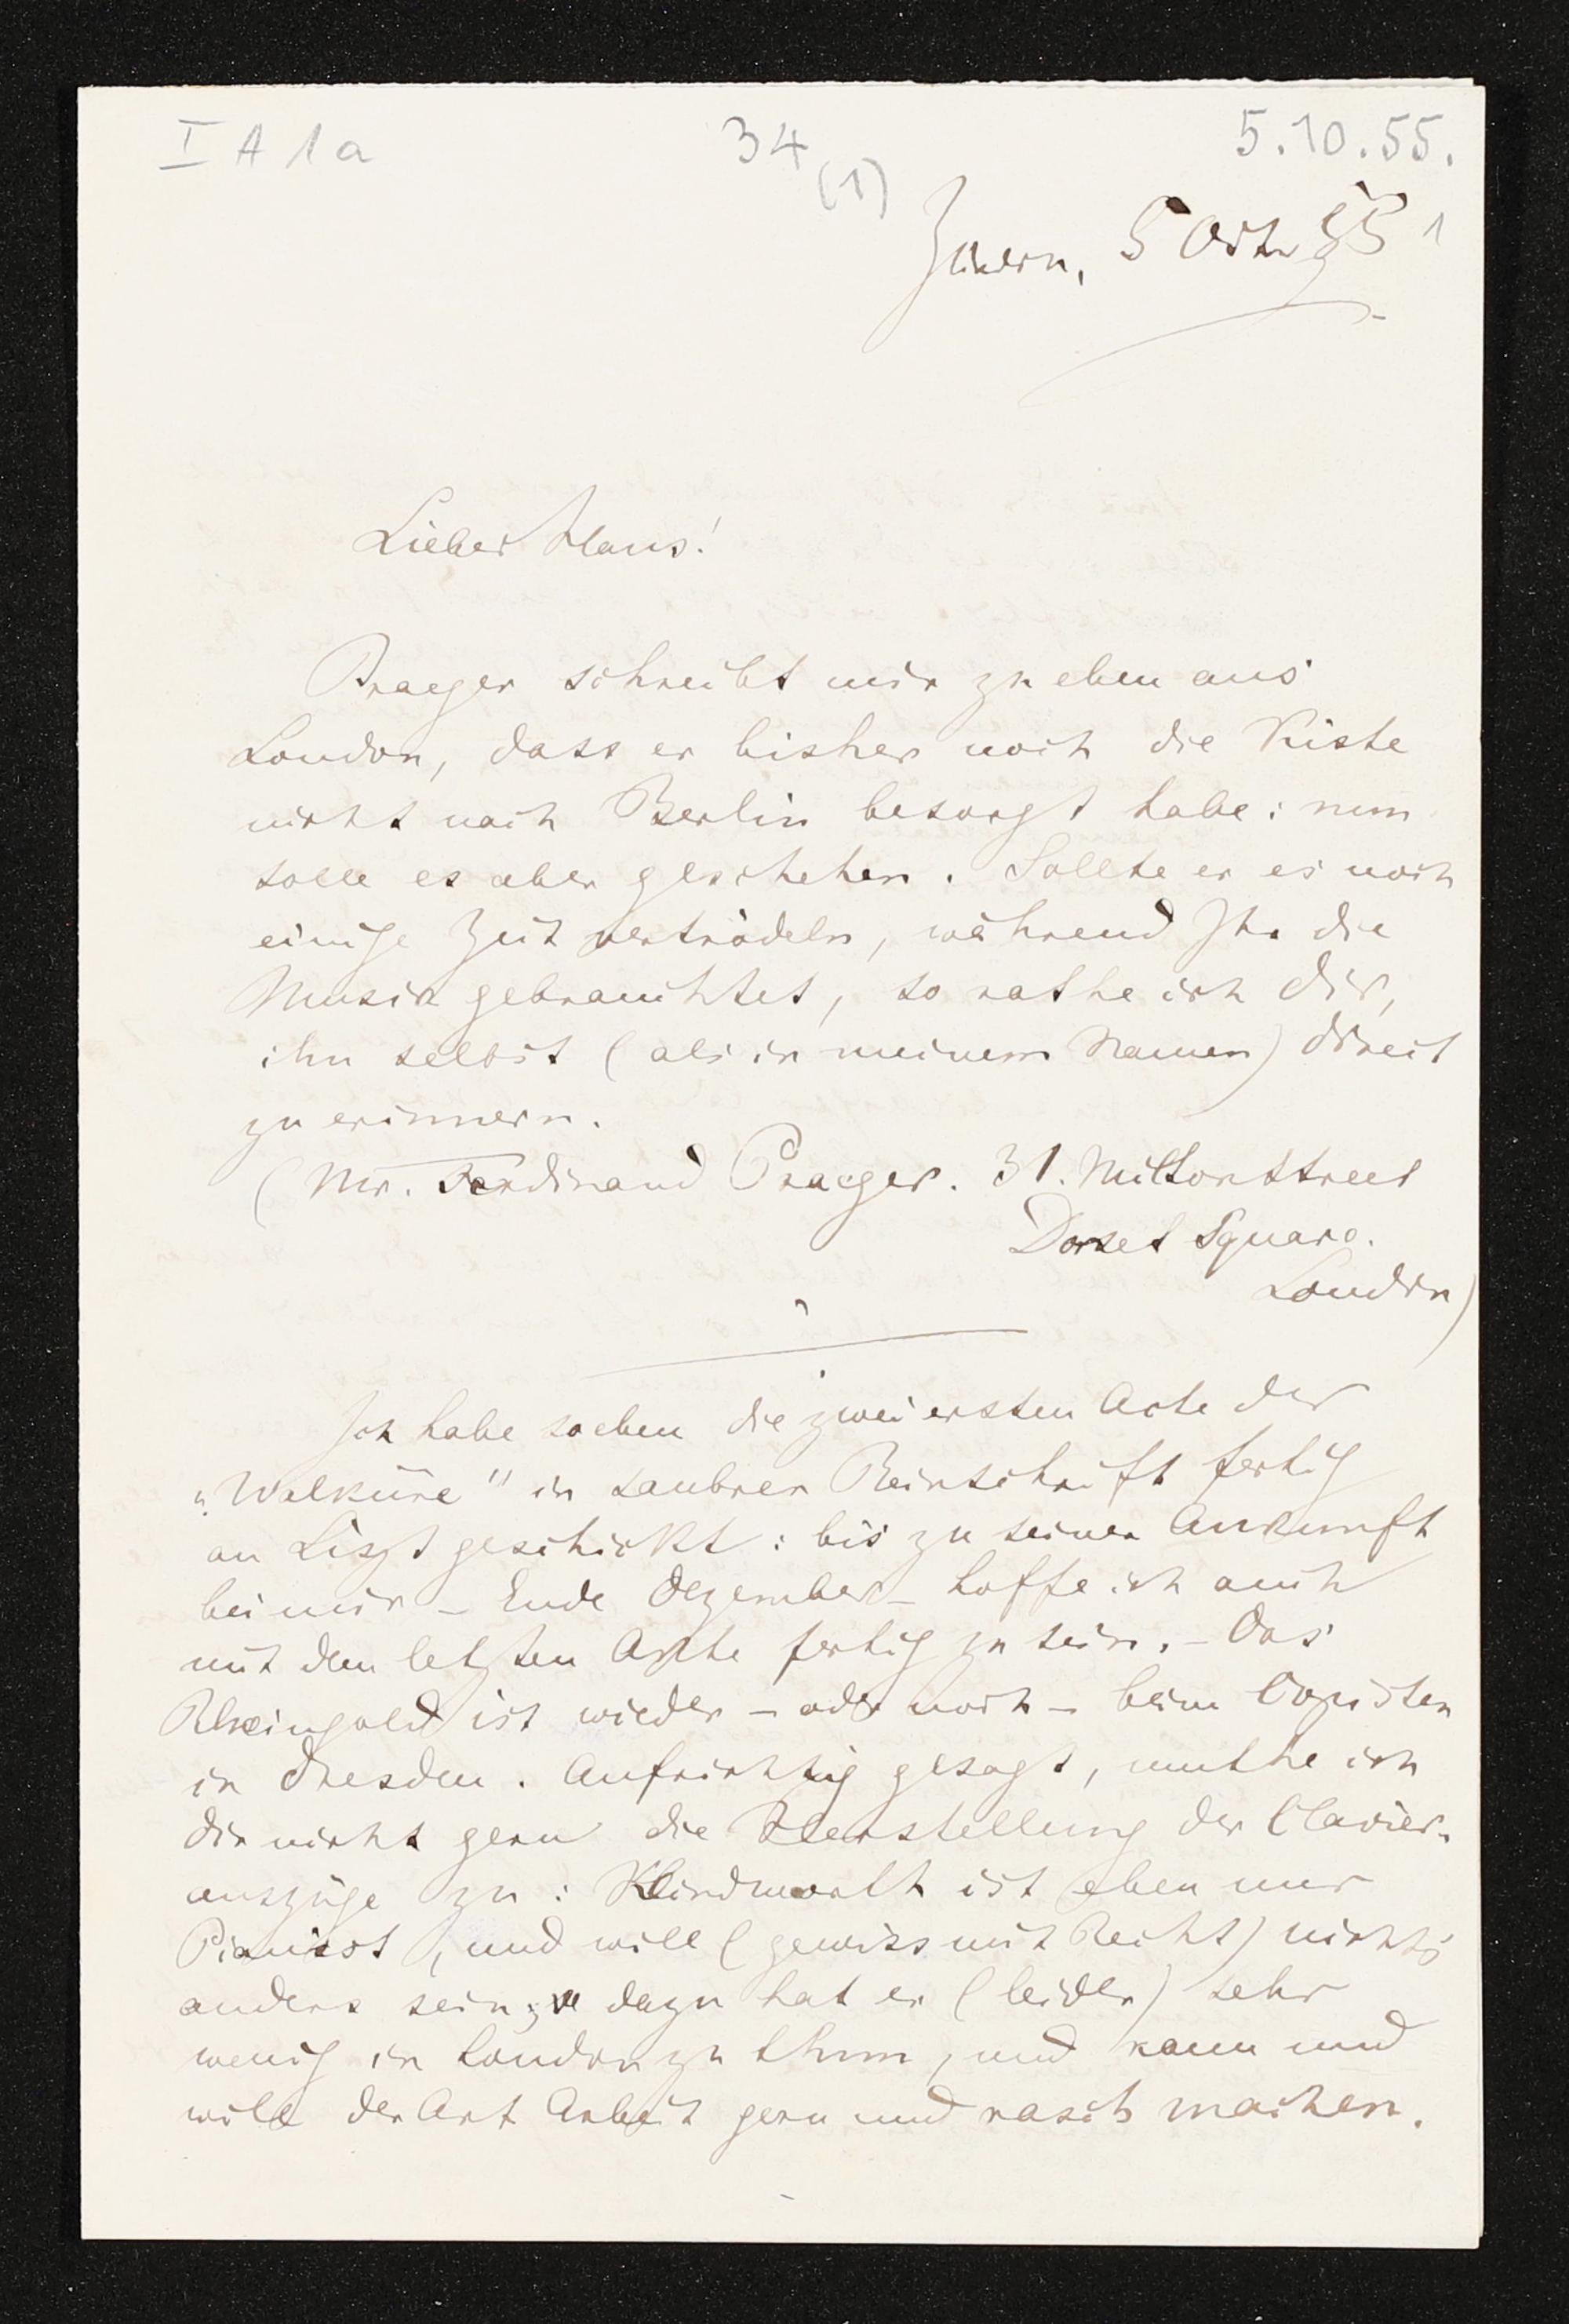 I A 1a
34
(1)
5.10.55.
Zürich, 5 Oct. 55
1
Lieber Hans!
Praeger schreibt mir so eben aus
London, dass er bisher noch die Kiste
nicht nach Berlin besorgt habe: nun
solle es aber geschehen. Sollte er es noch
einige Zeit vertrödeln, während Ihr die
Musik gebrauchtet, so rathe ich dir,
ihn selbst (als in meinem Namen) direct
zu erinnern.
(Mr. Ferdinand Praeger. 31. Miltonstreet
Dorset Square.
London)
Ich habe soeben die zwei ersten Acte der
„Walküre" in saubrer Reinschrift fertig
an Liszt geschickt: bis zu seiner Ankunft
bei mir – Ende Dezember – hoffe ich auch
mit dem letzten Acte fertig zu sein. – Das
Rheingold ist wieder – oder noch – beim Copisten
in Dresden. Aufrichtig gesagt, muthe ich
dir nicht gern die Herstellung der Clavier-
auszüge zu: Klindworth ist eben nur
Pianist, und will (gewiss mit Recht) nichts
anders sein; dazu hat er (leider) sehr
wenig in London zu thun, und kann und
will der Art Arbeit gern und rasch machen.